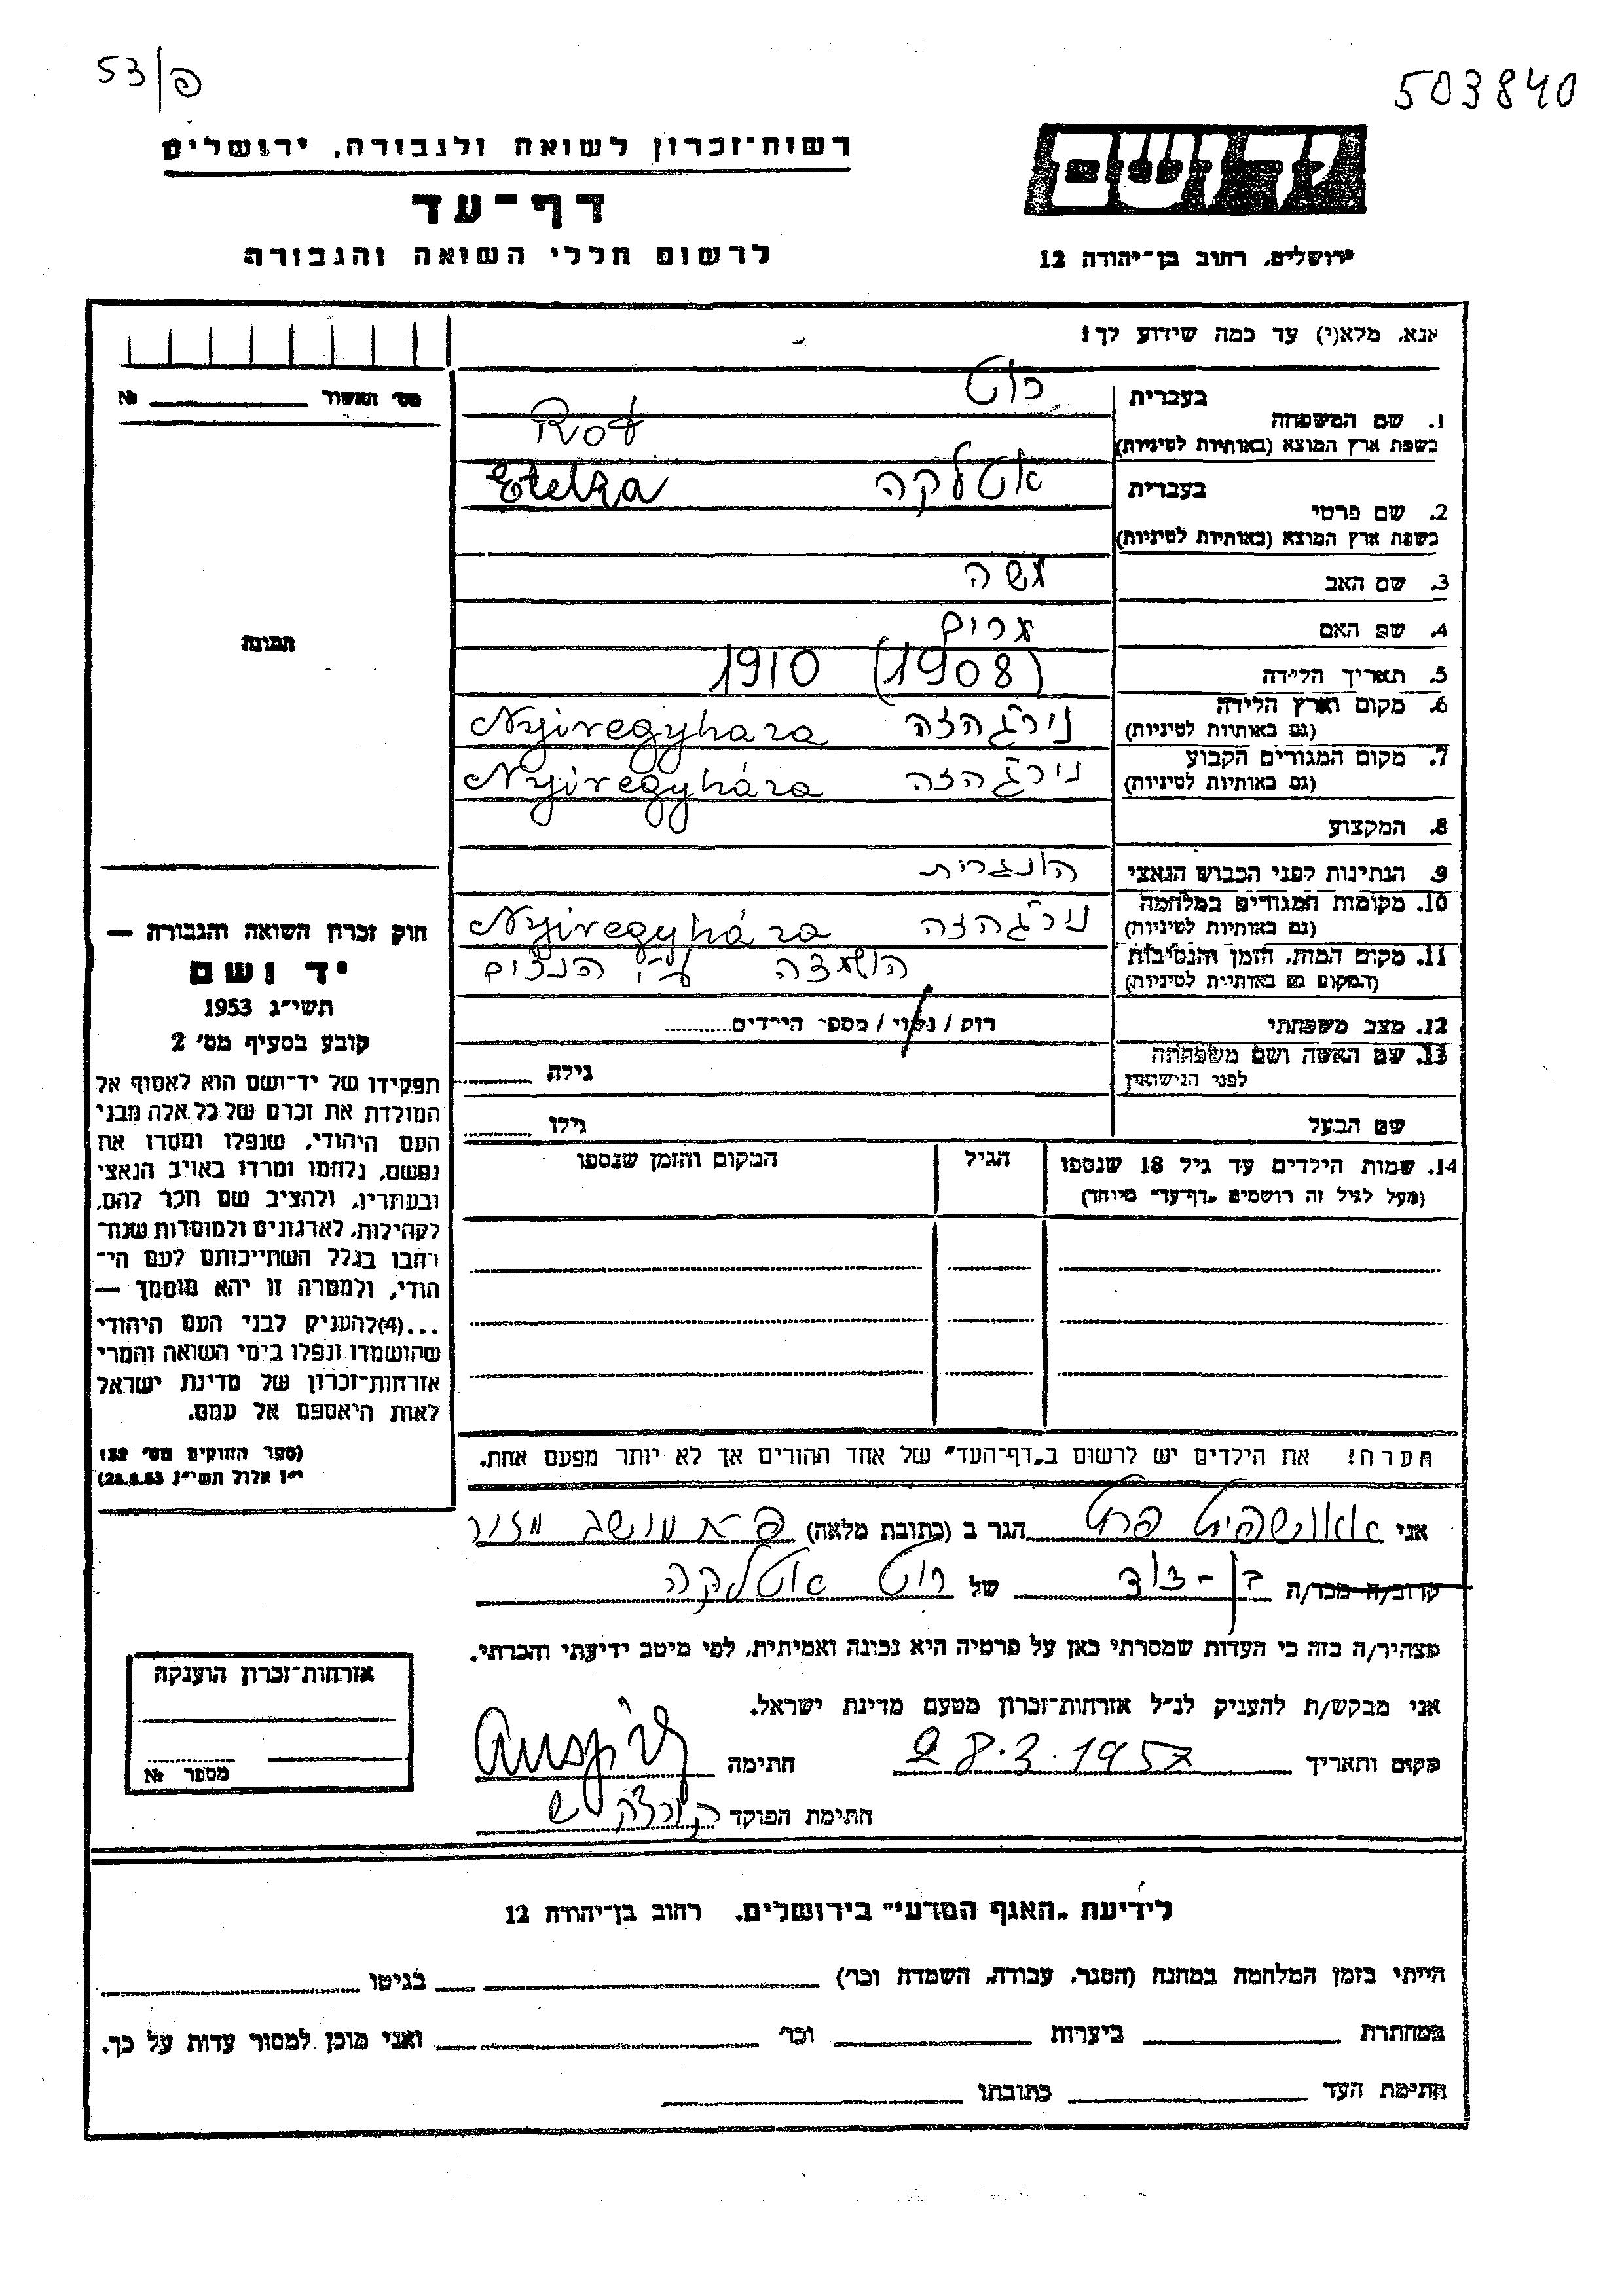 53/פ
503840
רשות-זכרון לשואה ולגבורה, ירושלים
דף-עד
לרשום חללי השואה והגבורה
יד ושם
ירושלים, רחוב בן-יהודה 12
אנא, מלא(י) עד כמה שידוע לך!
מס' האשור № 
1. שם המשפחה
בעברית רוט
בשפת ארץ המוצא (באותיות לטיניות) Rot
2. שם פרטי
בעברית אטלקה Etelka
בשפת ארץ המוצא (באותיות לטיניות)
3. שם האב משה
4. שם האם מרים
5. תאריך הלידה 1910 (1908)
6. מקום וארץ הלידה נירג'הזה Nyiregyhaza
(גם באותיות לטיניות)
7. מקום המגורים הקבוע נירג'הזה Nyiregyháza
(גם באותיות לטיניות)
8. המקצוע
9. הנתינות לפני הכבוש הנאצי הונגרית
10. מקומות המגורים במלחמה נירג'הזה Nyiregyháza
(גם באותיות לטיניות)
11. מקום המות, הזמן והנסיבות הושמדה ע"י הנצים
(המקום גם באותיות לטיניות)
12. מצב משפחתי רוק / נשוי / מספר הילדים
13. שם האשה ושם משפחתה
לפני הנישואין
גילה
שם הבעל גילו
14. שמות הילדים עד גיל 18 שנספו הגיל המקום והזמן שנספו
(מעל לגיל זה רושמים "דף-עד" מיוחד)
הערה! את הילדים יש לרשום ב"דף-העד" של אחד ההורים אך לא יותר מפעם אחת.
תמונה
חוק זכרון השואה והגבורה —
יד ושם
תשי"ג 1953
קובע בסעיף מס' 2
תפקידו של יד-ושם הוא לאסוף אל
המולדת את זכרם של כל אלה מבני
העם היהודי, שנפלו ומסרו את
נפשם, נלחמו ומרדו באויב הנאצי
ובעוזריו, ולהציב שם וזכר להם,
לקהילות, לארגונים ולמוסדות שנח-
רבו בגלל השתייכותם לעם הי-
הודי, ולמטרה זו יהא מוסמך —
...(4)להעניק לבני העם היהודי
שהושמדו ונפלו בימי השואה והמרי
אזרחות-זכרון של מדינת ישראל
לאות היאספם אל עמם.
(ספר החוקים מס' 132
י"ז אלול תשי"ג 28.8.53)
אני הגר ב (כתובת מלאה) מושב מזור
קרוב/ה מכר/ה בן-דוד של רוט אטלקה
מצהיר/ה בזה כי העדות שמסרתי כאן על פרטיה היא נכונה ואמיתית, לפי מיטב ידיעתי והכרתי.
אני מבקש/ת להעניק לנ"ל אזרחות-זכרון מטעם מדינת ישראל.
מקום ותאריך 28.3.1957 חתימה
חתימת הפוקד
אזרחות-זכרון הוענקה
מספר №
לידיעת "האגף המדעי" בירושלים, רחוב בן-יהודה 12
הייתי בזמן המלחמה במחנה (הסגר, עבודה, השמדה וכו') בגיטו
במחתרת ביערות וכו' ואני מוכן למסור עדות על כך.
חתימת העד כתובתו